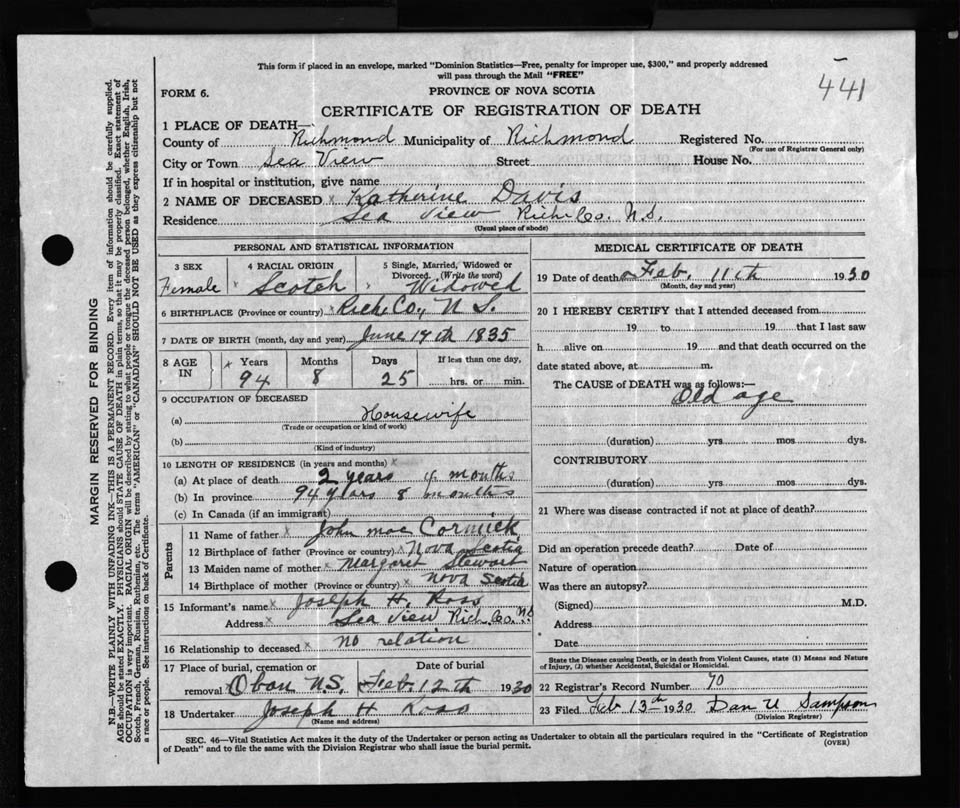 This form if placed in an envelope, marked "Dominion Statistics—Free, penalty for improper use, $300," and properly addressed
will pass through the Mail "FREE"
441
FORM 6.
PROVINCE OF NOVA SCOTIA
CERTIFICATE OF REGISTRATION OF DEATH
1 PLACE OF DEATH—
County of Richmond Municipality of Richmond Registered No.
(For use of Registrar General only)
City or Town Sea View Street House No.
If in hospital or institution, give name
2 NAME OF DECEASED x Katherine Davis
Residence Sea View Rich. Co. N.S.
(Usual place of abode)
PERSONAL AND STATISTICAL INFORMATION
3 SEX 4 RACIAL ORIGIN 5 Single, Married, Widowed or
Divorced. (Write the word)
Female x Scotch x Widowed
6 BIRTHPLACE (Province or country) x Rich. Co., N S.
7 DATE OF BIRTH (month, day and year) June 17th 1835
8 AGE IN x Years Months Days If less than one day,
94 8 25 hrs. or min.
9 OCCUPATION OF DECEASED
(a) Housewife
(Trade or occupation or kind of work)
(b)
(Kind of industry)
10 LENGTH OF RESIDENCE (in years and months) x
(a) At place of death 2 years 4 months
(b) In province 94 years 8 months
(c) In Canada (if an immigrant)
Parents
11 Name of father x John Mac Cormick
12 Birthplace of father (Province or country) x Nova Scotia
13 Maiden name of mother x Margaret Stewart
14 Birthplace of mother (Province or country) x Nova Scotia
15 Informant's name x Joseph H. Ross
Address x Sea View Rich. Co. N.S
16 Relationship to deceased x no relation
17 Place of burial, cremation or Date of burial
removal x Oban N.S. Feb. 12th 1930
18 Undertaker Joseph H Ross
(Name and address)
MEDICAL CERTIFICATE OF DEATH
19 Date of death Feb. 11th 1930
(Month, day and year)
20 I HEREBY CERTIFY that I attended deceased from
19 to 19 that I last saw
h alive on 19 and that death occurred on the
date stated above, at m.
The CAUSE OF DEATH was as follows:—
Old age
(duration) yrs mos dys.
CONTRIBUTORY
(duration) yrs mos dys.
21 Where was disease contracted if not at place of death?
Did an operation precede death? Date of
Nature of operation
Was there an autopsy?
(Signed) M.D.
Address
Date
State the Disease causing Death, or in death from Violent Causes, state (1) Means and Nature
of Injury, (2) whether Accidental, Suicidal or Homicidal.
22 Registrar's Record Number 70
23 Filed Feb 13th 1930 Dan U Sampson
(Division Registrar)
SEC. 46—Vital Statistics Act makes it the duty of the Undertaker or person acting as Undertaker to obtain all the particulars required in the "Certificate of Registration
of Death" and to file the same with the Division Registrar who shall issue the burial permit.
(OVER)
MARGIN RESERVED FOR BINDING
N.B.—WRITE PLAINLY WITH UNFADING INK—THIS IS A PERMANENT RECORD. Every item of information should be carefully supplied.
AGE should be stated EXACTLY. PHYSICIANS should STATE CAUSE OF DEATH in plain terms, so that it may be properly classified. Exact statement of
OCCUPATION is very important. RACIAL ORIGIN will be described by stating to what people or tongue the deceased person belonged, whether English, Irish,
Scotch, French, German, Russian, Ruthenian, etc. The terms "AMERICAN" or "CANADIAN" SHOULD NOT BE USED as they express citizenship but not
a race or people. See instructions on back of Certificate.